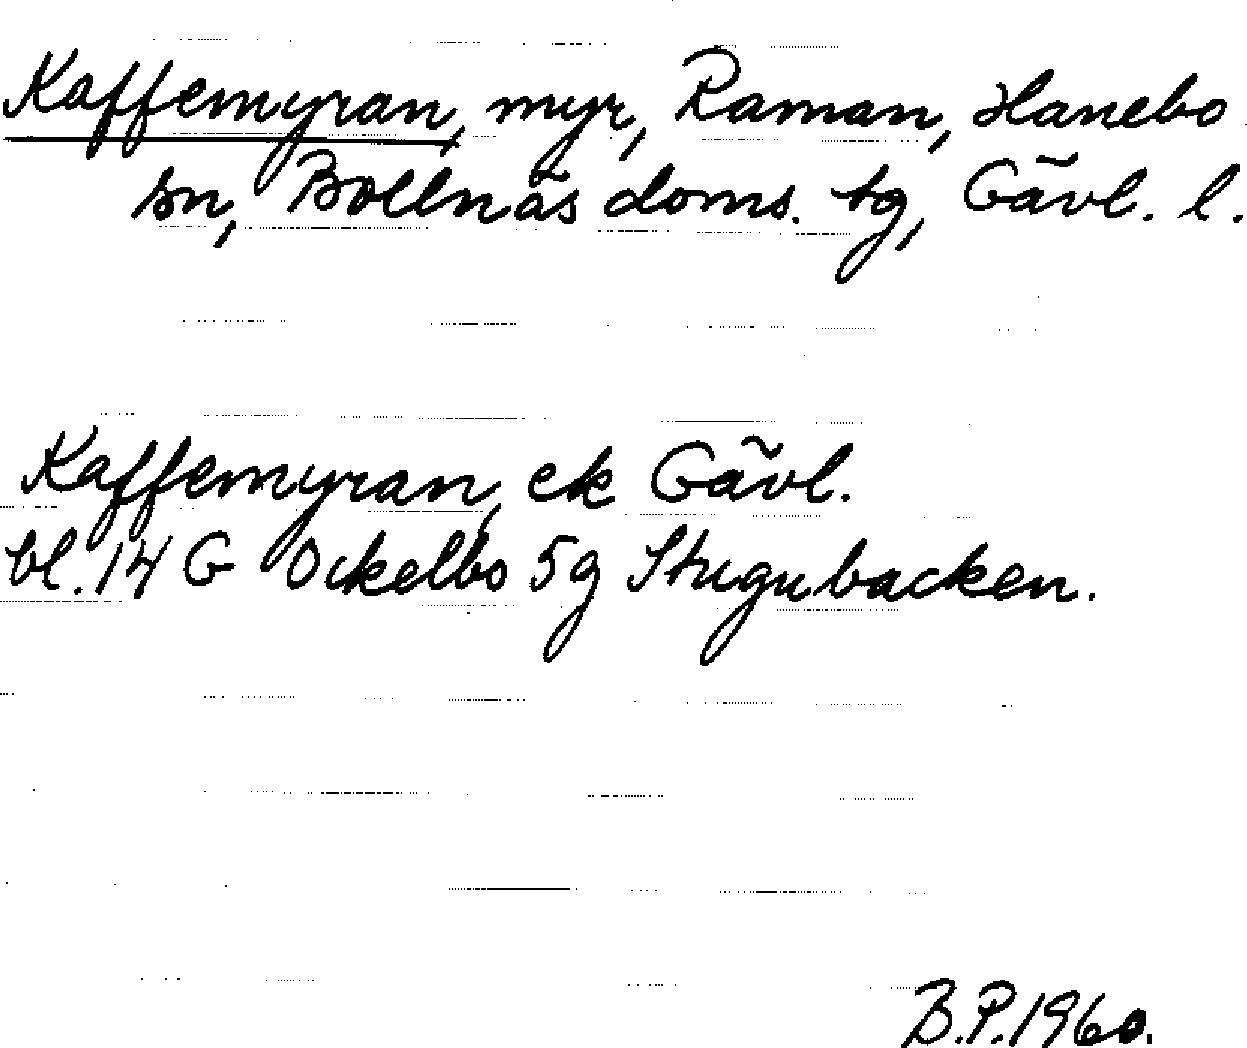 Kaffemyran, myr, Raman, Hanebo
sn, Bollnäs doms. tg, Gävl. l.
Kaffemyran, ek Gävl.
bl. 14 G Ockelbo 5g Stugubacken.
B.P. 1960.